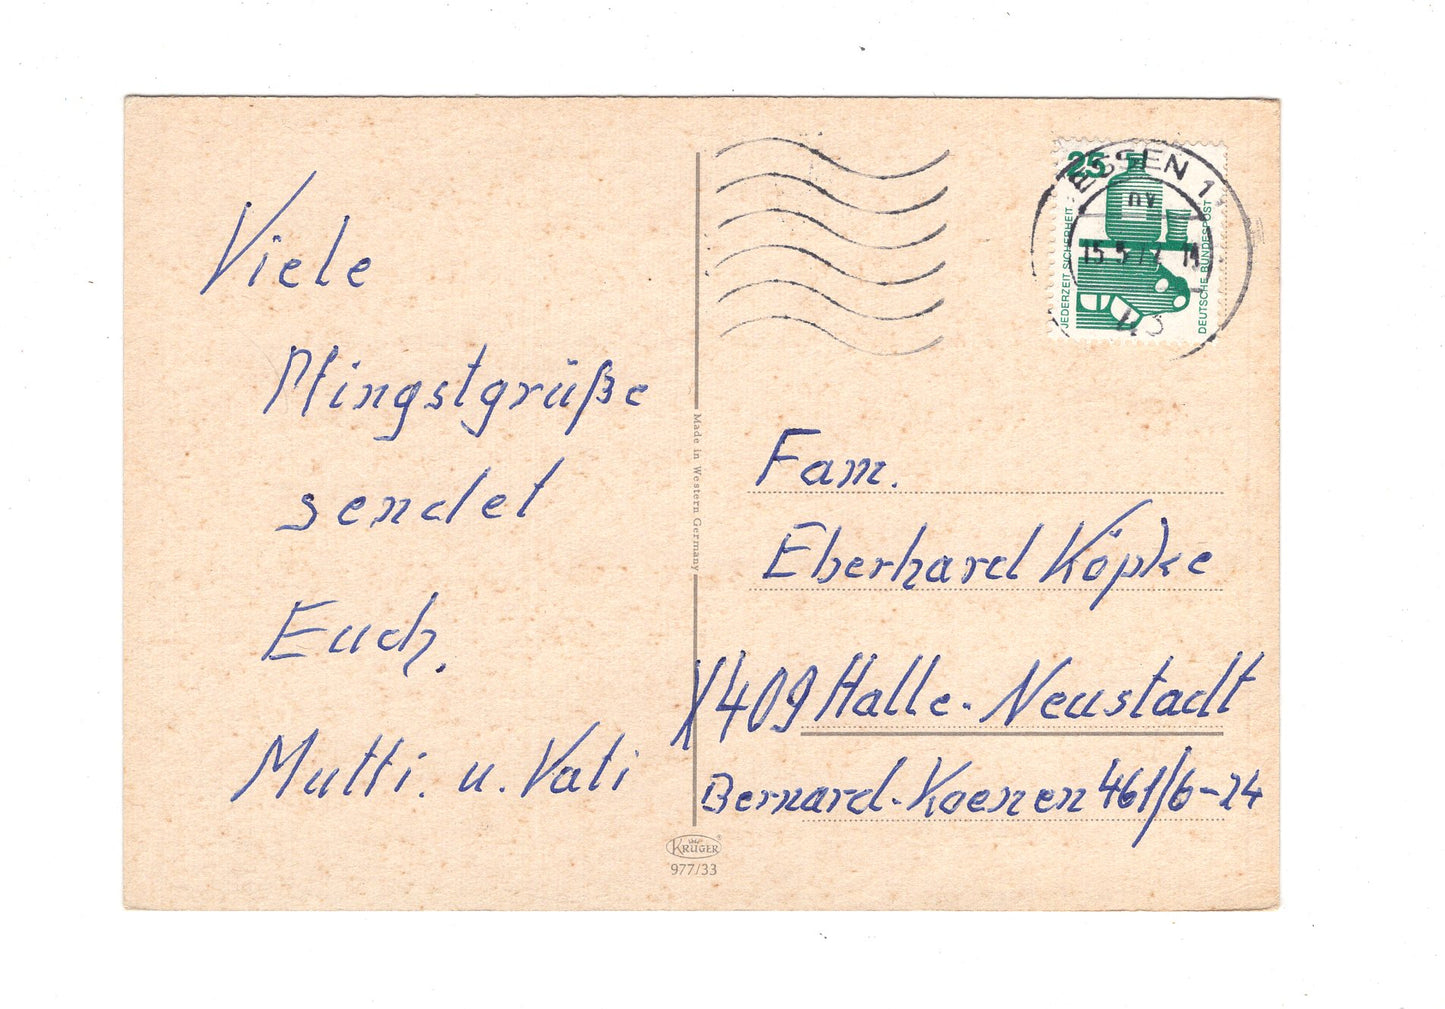 Viele
Pfingstgrüße
sendet
Euch.
Mutti. u. Vati
Made in Western Germany
KRÜGER
977/33
25
JEDERZEIT SICHERHEIT
DEUTSCHE BUNDESPOST
ESSEN 1
Fam.
Eberhard Köpke
X409 Halle-Neustadt
Bernard-Koenen 461/6-24